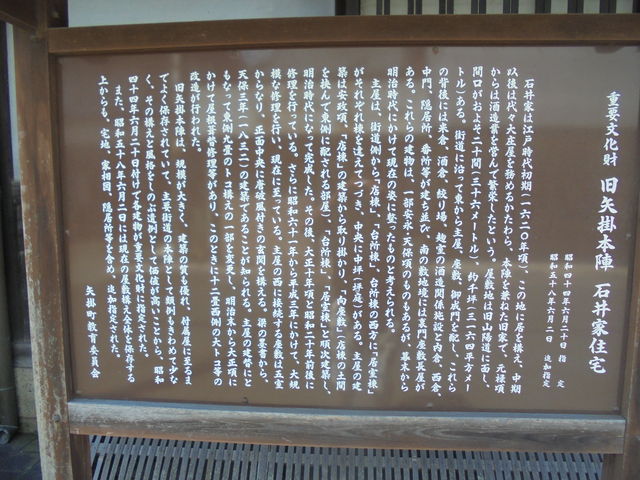 重要文化財 旧矢掛本陣 石井家住宅
昭和四十四年六月二十日 指定
昭和五十八年六月二日 追加指定
石井家は江戸時代初期(一六二〇年頃)、この地に居を構え、中期
以後は代々大庄屋を務めるかたわら、本陣を兼ねた旧家で、元禄頃
からは酒造業を営んで繁栄したという。屋敷地は旧山陽道に面し、
間口がおよそ二十間(三十六メートル)、約千坪(三一六〇平方メー
トル)ある。街道に沿って東から主屋、座敷、御成門を配し、これら
の背後には米倉、酒倉、絞り場、麹室の酒造関係施設と内倉、西倉、
中門、隠居所、番所等が建ち並び、南の敷地境には裏門座敷長屋が
ある。これらの建物は、一部安永・天保頃のものもあるが、幕末から
明治時代にかけて現在の形に整ったものと考えられる。
主屋は、街道側から「店棟」、「台所棟」、台所棟の西方に「居室棟」
がそれぞれ棟を違えてつづき、中央に中坪(坪庭)がある。主屋の建
築は安政頃、「店棟」の建築から取り掛かり、「向座敷」(店棟の土間
を挟んで東側に配される部屋)、「台所棟」、「居室棟」と順次建築し、
明治時代になって完成した。その後、大正十年頃と昭和二十年前後に
修理を行っている。さらに昭和六十一年から平成三年にかけて、大規
模な修理を行い、現在に至っている。主屋の西に接続する座敷は五室
からなり、正面中央に唐破風付きの玄関を構える。梁の墨書から、
天保三年(一八三二)の建築であることが知られる。主屋の建替にと
もなって東側六畳のトコ構えの一部を変更し、明治末から大正頃に
かけて屋根葺替修理等があり、このときに十二畳西側の大トコ等の
改造が行われた。
旧矢掛本陣は、規模が大きく、建築の質も優れ、付属屋に至るま
でよく保存されていて、主要街道の本陣として類例もきわめて少な
く、その構えと風格をしのぶ遺例として価値が高いことから、昭和
四十四年六月二十日付けで各建物が重要文化財に指定された。
また、昭和五十八年六月二日には現在の屋敷構え全体を保存する
上からも、宅地、家相図、隠居所等を含め、追加指定された。
矢掛町教育委員会